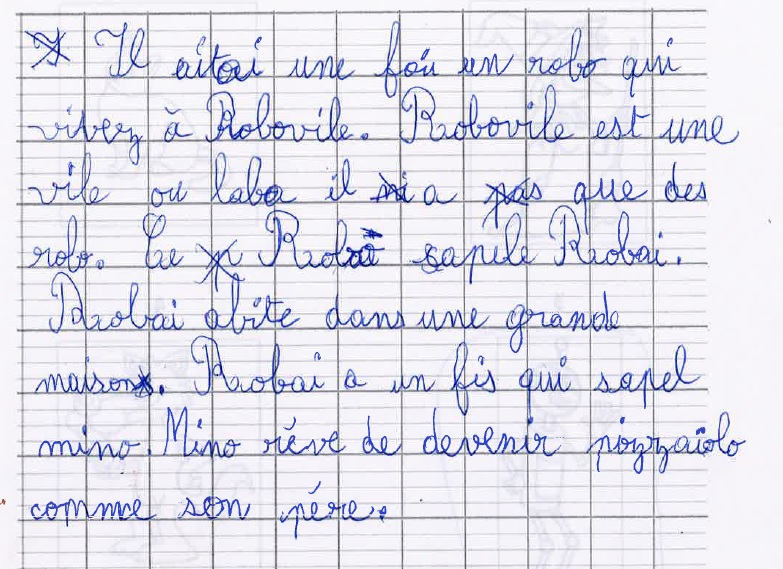 Il aitai une foù un robo qui
vivez à Robovile. Robovile est une
vile ou laba il a que des
robo. Ce Robo sapele Robai.
Robai abite dans une grande
maison. Robai a un fis qui sapel
mino. Mino rêve de devenir pizzaïolo
comme son pére.